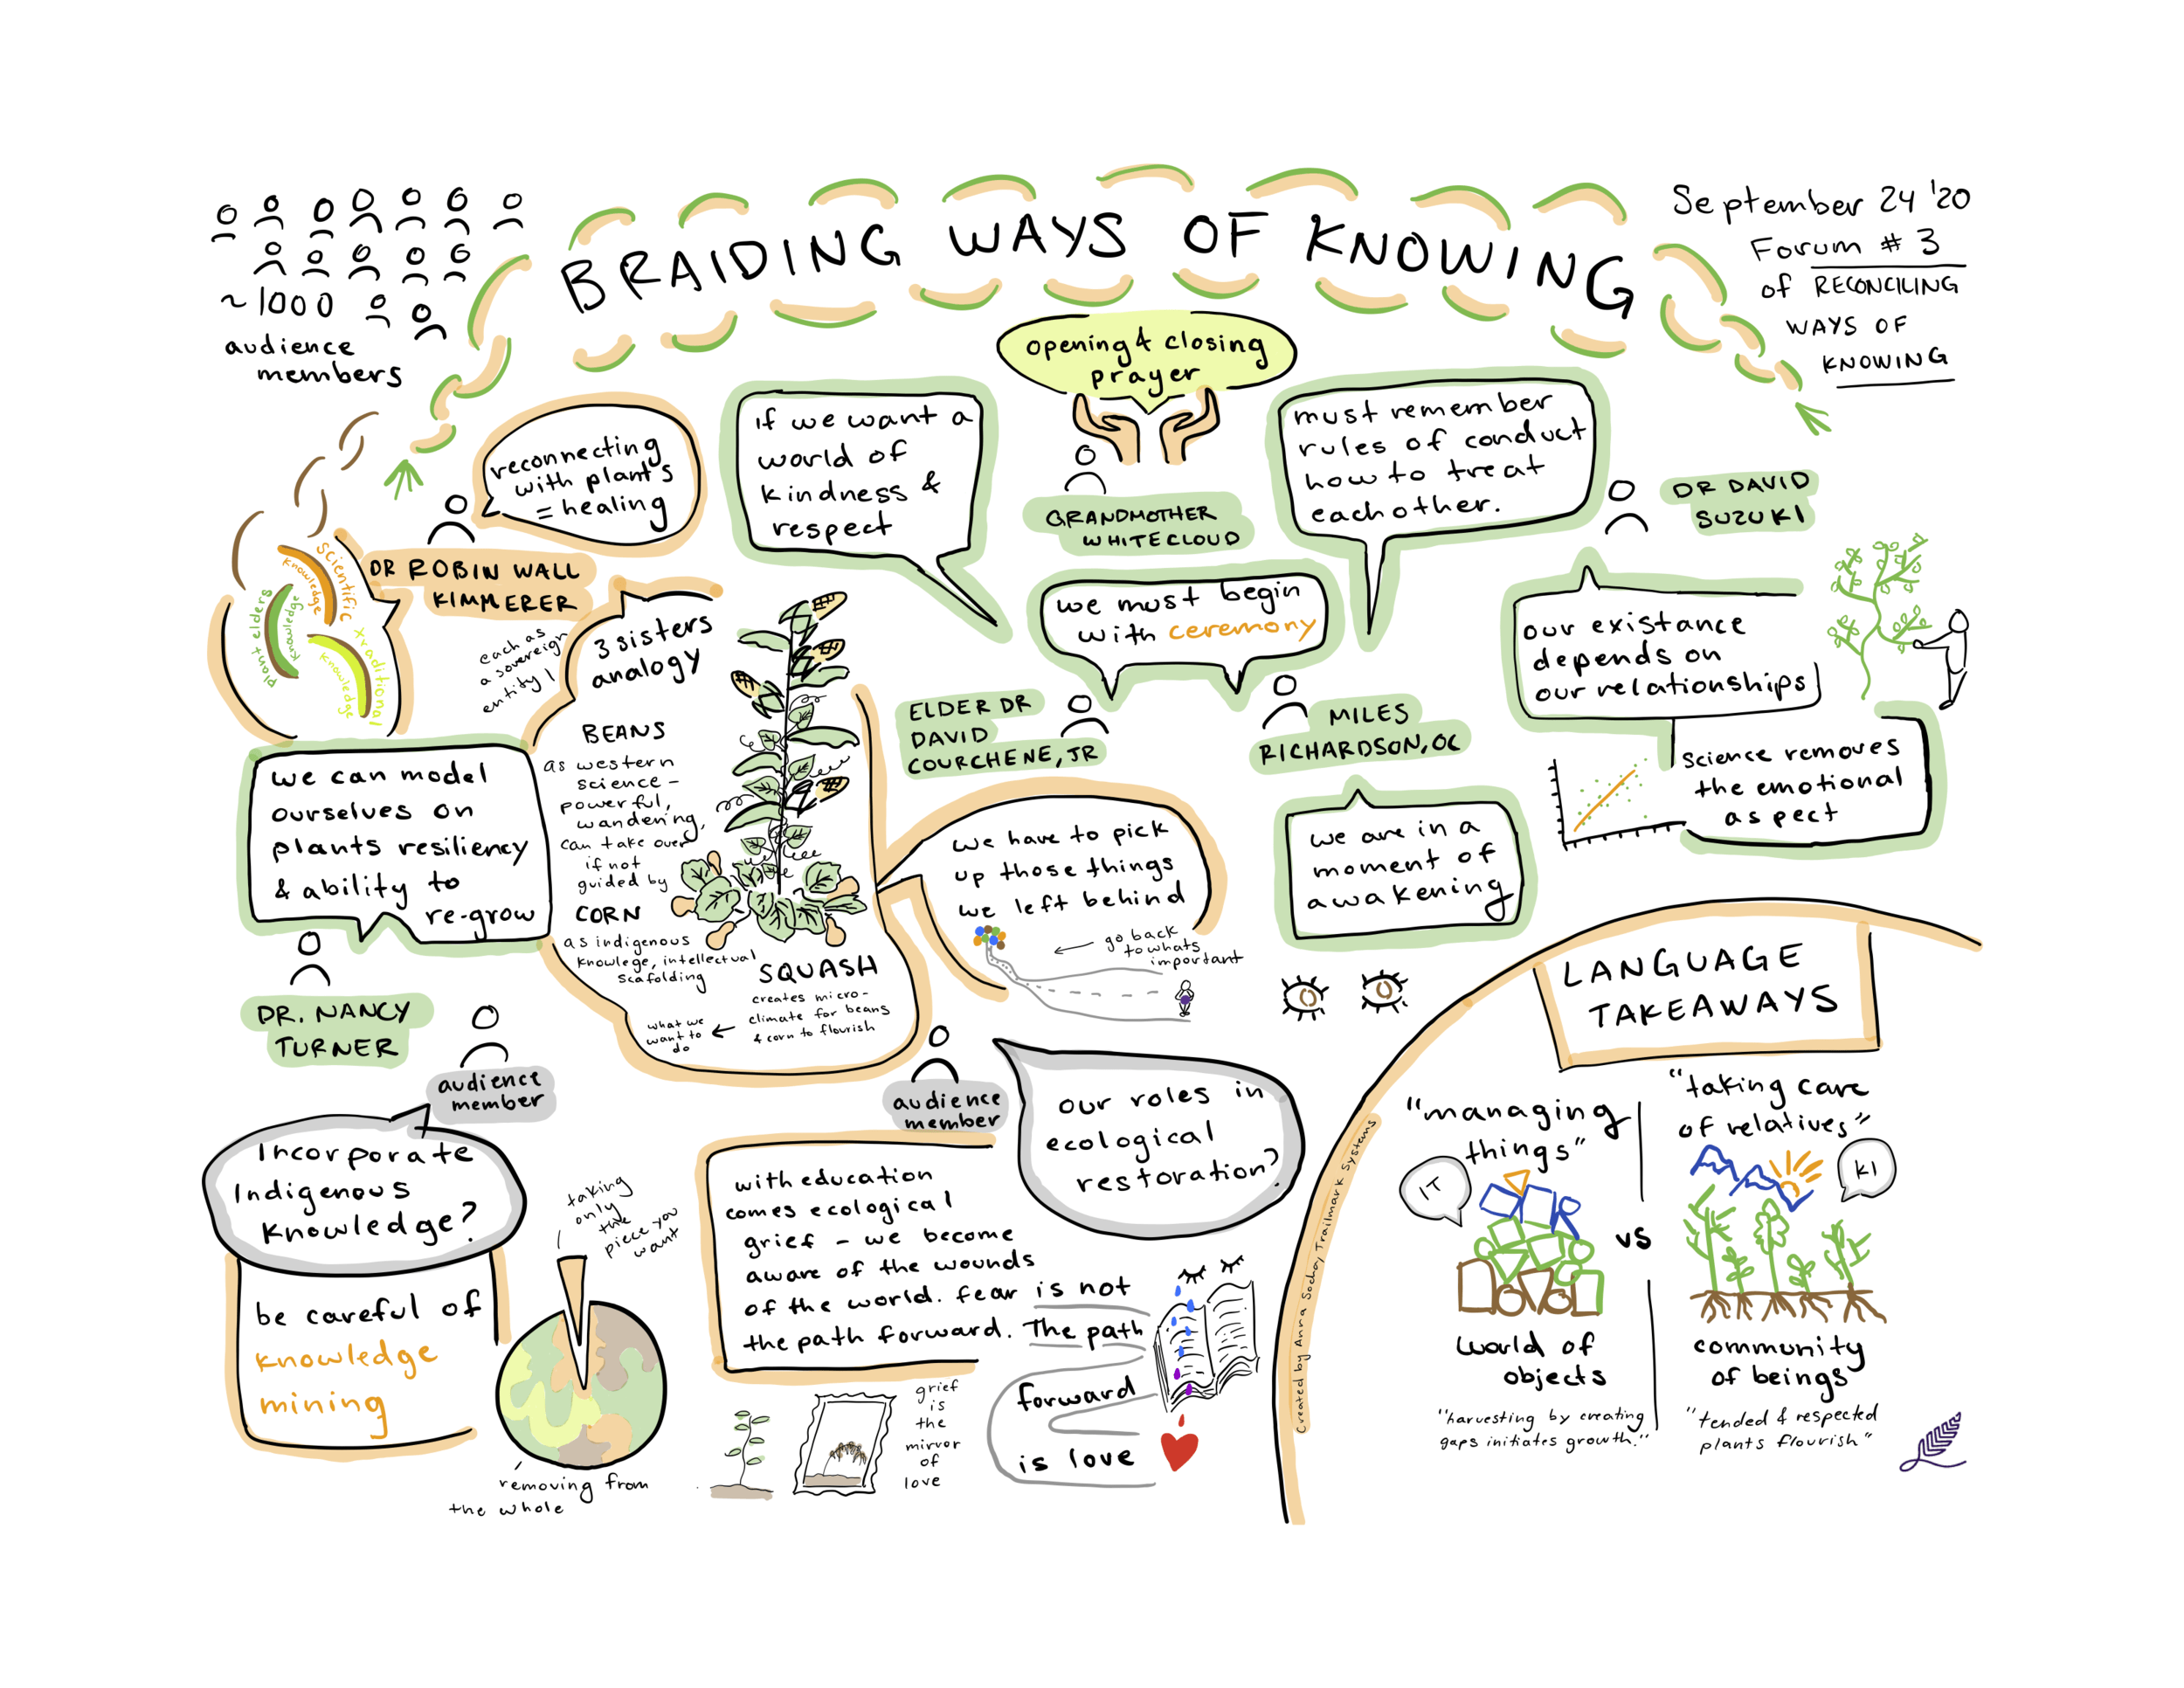 BRAIDING WAYS OF KNOWING
~1000
audience
members
September 24 '20
Forum # 3
of RECONCILING
WAYS OF
KNOWING
opening & closing
prayer
GRANDMOTHER
WHITECLOUD
reconnecting
with plants
= healing
DR ROBIN WALL
KIMMERER
Scientific
knowledge
plant elders
knowledge
traditional
knowledge
each as
a sovereign
entity!
3 sisters
analogy
BEANS
as western
science -
powerful,
wandering,
can take over
if not
guided by
CORN
as indigenous
knowlege, intellectual
scafolding
SQUASH
creates micro-
climate for beans
& corn to flourish
what we
want to
do
if we want a
world of
kindness &
respect
must remember
rules of conduct
how to treat
eachother.
we must begin
with ceremony
ELDER DR
DAVID
COURCHENE, JR
MILES
RICHARDSON, OC
DR DAVID
SUZUKI
our existance
depends on
our relationships
science removes
the emotional
aspect
we are in a
moment of
awakening
we have to pick
up those things
we left behind
go back
to whats
important
we can model
ourselves on
plants resiliency
& ability to
re-grow
DR. NANCY
TURNER
audience
member
Incorporate
Indigenous
Knowledge?
be careful of
knowledge
mining
taking
only
the
piece you
want
removing from
the whole
audience
member
our roles in
ecological
restoration?
with education
comes ecological
grief - we become
aware of the wounds
of the world. fear is not
the path forward. The path
forward
is love
grief
is
the
mirror
of
love
Created by Anna Socha, Trailmark Systems
LANGUAGE
TAKEAWAYS
"managing
things"
IT
world of
objects
"harvesting by creating
gaps initiates growth."
vs
"taking care
of relatives"
KI
community
of beings
"tended & respected
plants flourish"